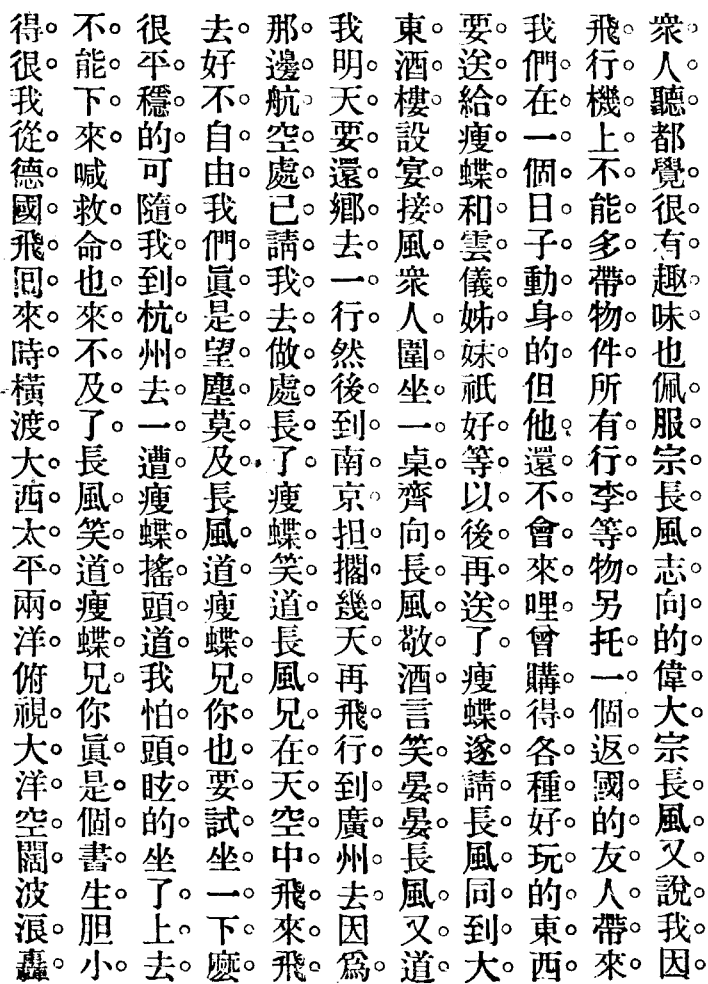 衆人聽都覺很有趣味也佩服宗長風志向的偉大宗長風又說我因
飛行機上不能多帶物件所有行李等物另托一個返國的友人帶來
我們在一個日子動身的但他還不曾來哩曾購得各種好玩的東西
要送給瘦蝶和雲儀姊妹祇好等以後再送了瘦蝶遂請長風同到大
東酒樓設宴接風衆人圍坐一桌齊向長風敬酒言笑晏晏長風又道
我明天要還鄉去一行然後到南京担擱幾天再飛行到廣州去因爲
那邊航空處已請我去做處長了瘦蝶笑道長風兄在天空中飛來飛
去好不自由我們眞是望塵莫及長風道瘦蝶兄你也要試坐一下麽
很平穩的可隨我到杭州去一遭瘦蝶搖頭道我怕頭眩的坐了上去
不能下來喊救命也來不及了長風笑道瘦蝶兄你眞是個書生胆小
得很我從德國飛囘來時橫渡大西太平兩洋俯視大洋空闊波浪轟